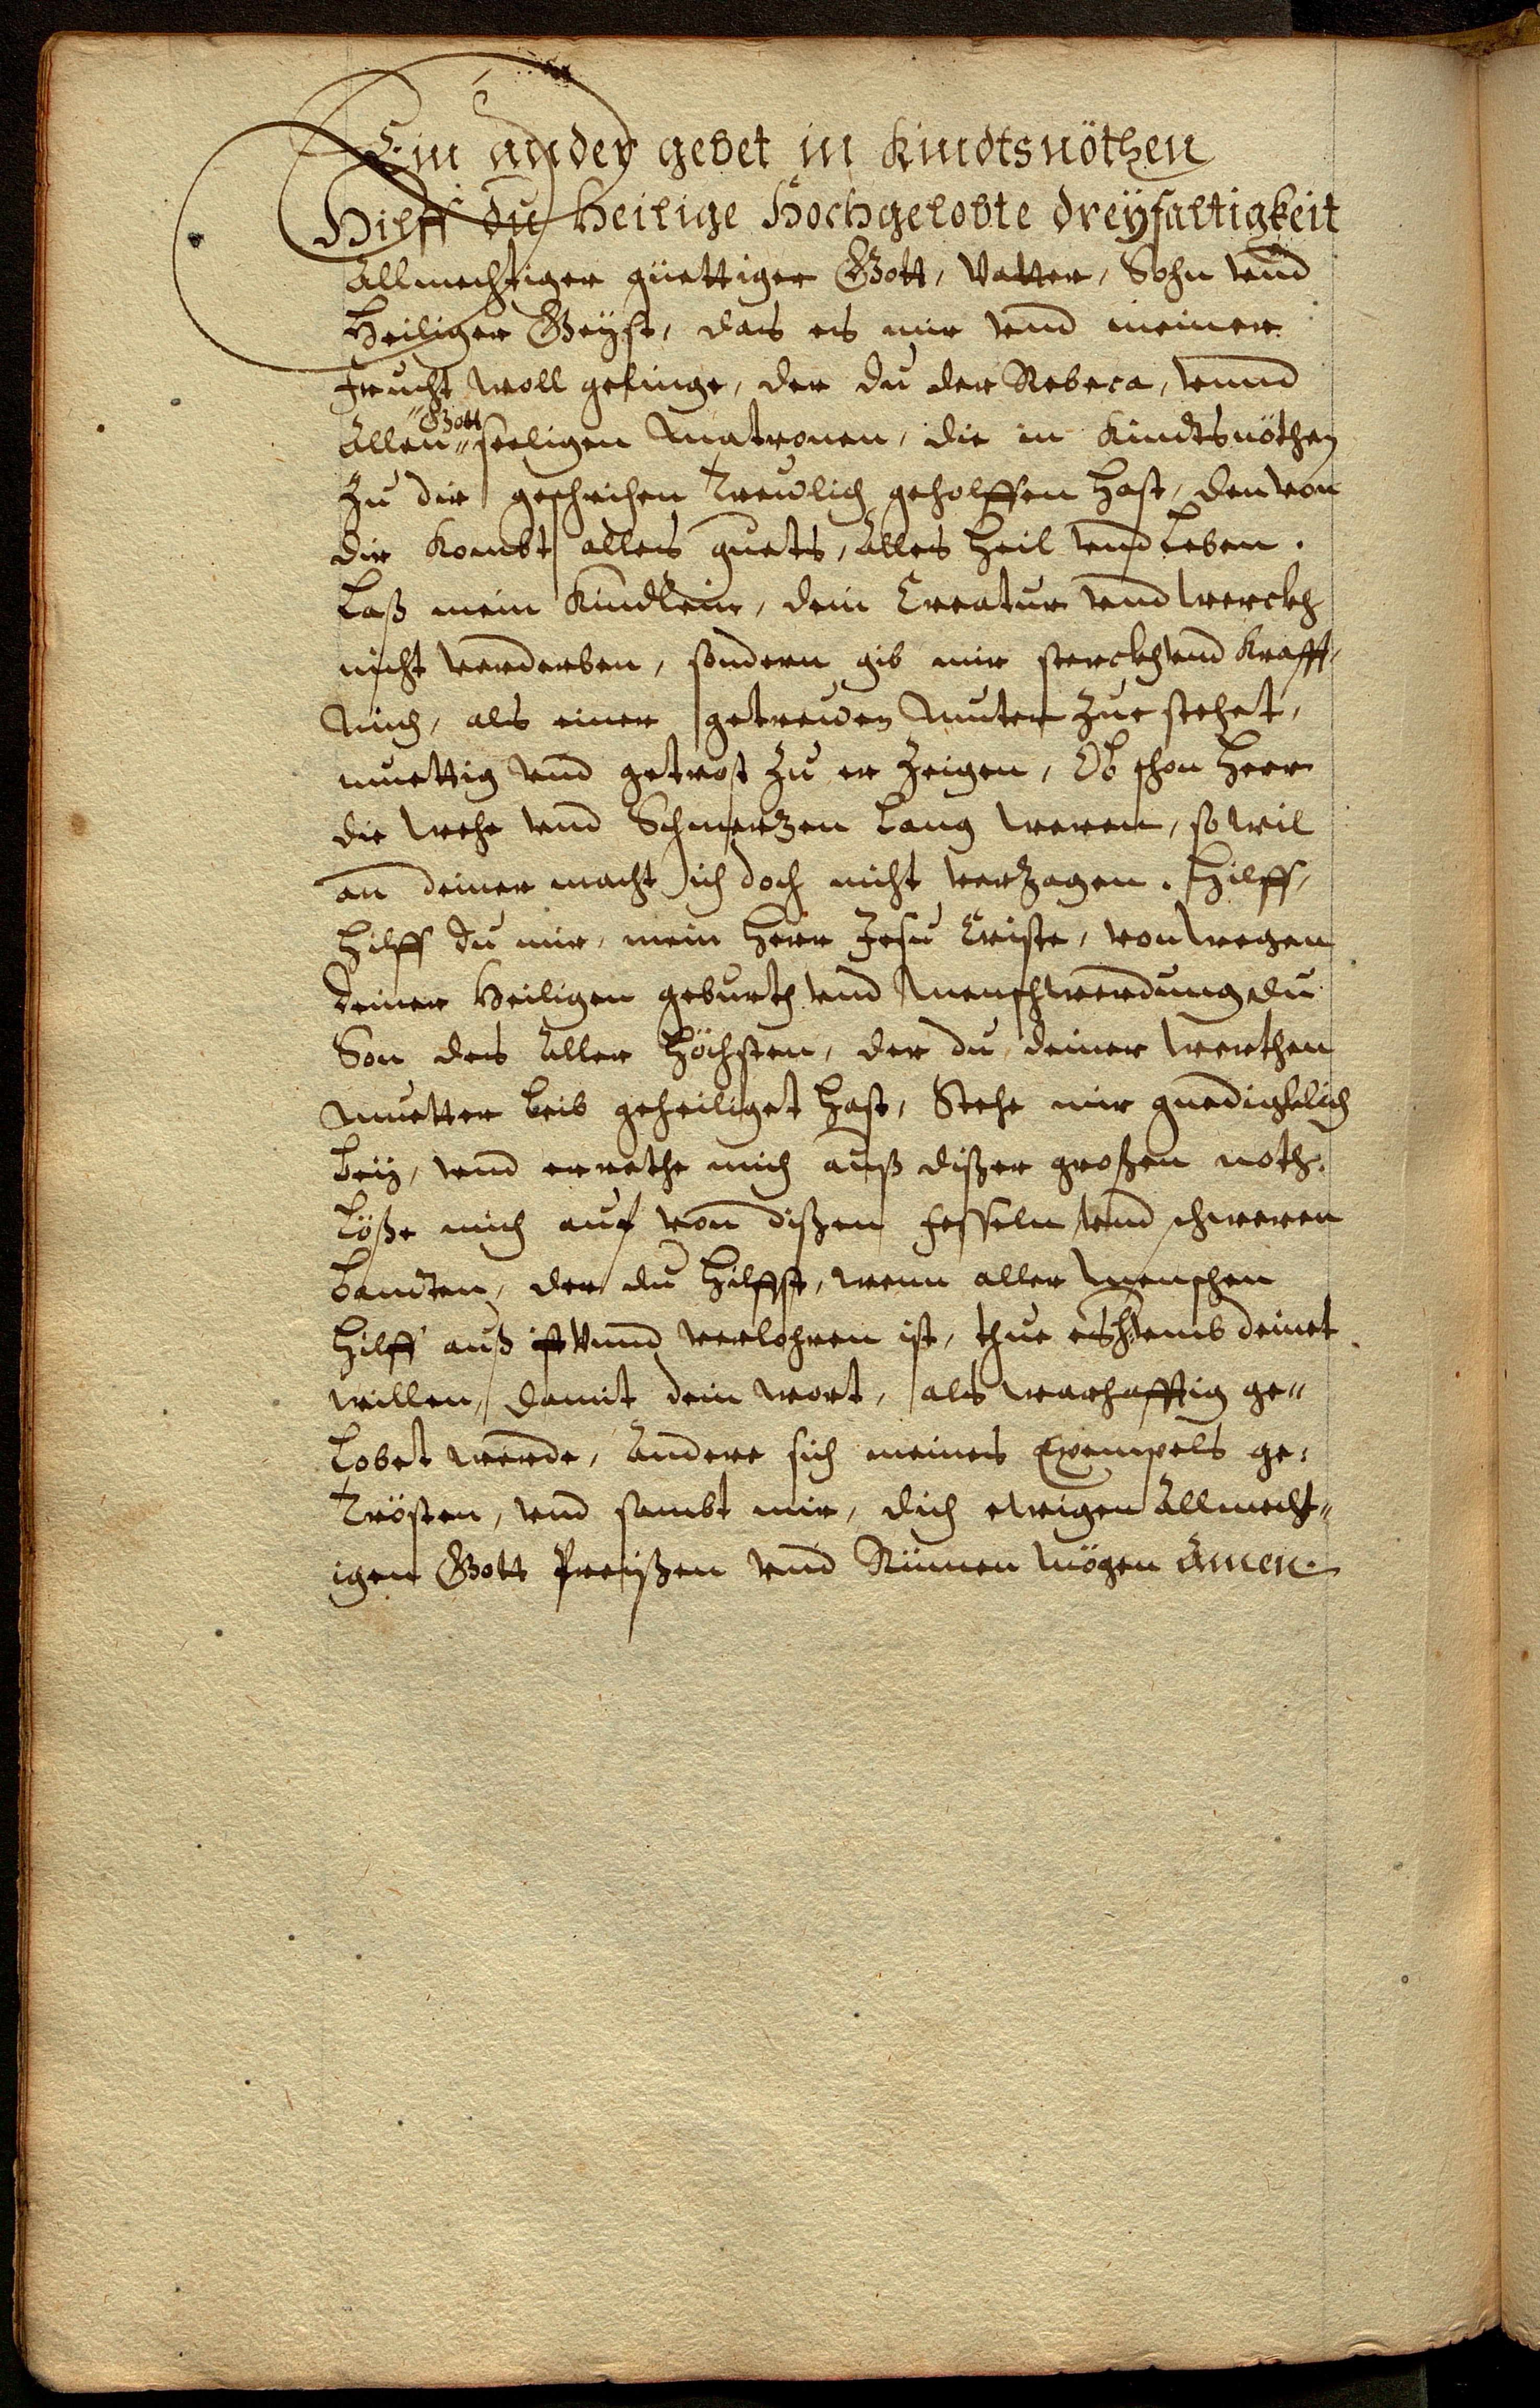 Ein ander gebet in Kindtsnöthen
Hilff du Heilige Hochgelobte dreÿfaltigkeit
Allmechtiger güettiger Gott, Vatter, Sohn vnd
Heiliger Geÿst, das es mir vnd meiner
frucht woll gelinge, der du der Rebeca, vnnd
Allen "Gott" seeligen Matronen, die in Kindtsnöthen
Zu dir geschrihen Treulich geholffen hast, den von
dir Kombt alles guets, Alles Heil vnd Leben.
Laß mein Kindlein, dein Creatur vnd werckh
nicht verderben, sondern gib mir sterckh vnd Krafft,
Mich, als einer getrewen Muter Zue stehet,
muettig vnd getrost Zu er Zeigen, Ob schon Herr
die wehe vnd Schmertzen Lang weren, so wil
an deiner macht ich doch nicht verZagen. Hilff,
Hilff du mir, mein Herr Jesu Criste, von wegen
deiner Heiligen geburth vnd Menschwerdung du
Son des Aller Höchsten, der du deiner werthen
Muetter Leib geheiliget hast, Stehe mir gnedigklich
beÿ, vnd errethe mich auß dißer großen noth.
Löße mich auf von dißen fesseln vnd schweren
banden, der du Hilffst, wenn aller Menschen
Hilff auß ist Vnnd verlohren ist, thue es H: vmb deinet
willen, damit dein wort, als warhafftig ge"
Lobet werde, Andere sich meines Exempels ge:
Trösten, vnd sambt mir, dich ewigen Allmecht"
igen Gott Preißen vnd Rümen Mögen Amen.